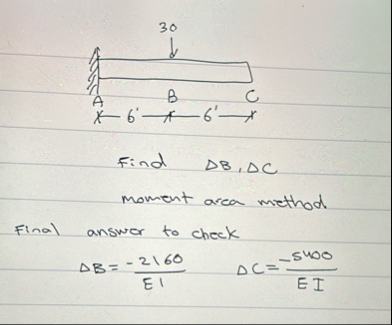 30
A B C
6' 6'
Find ΔB, ΔC
moment area method
Final answer to check
ΔB = -2160/EI ΔC = -5400/EI